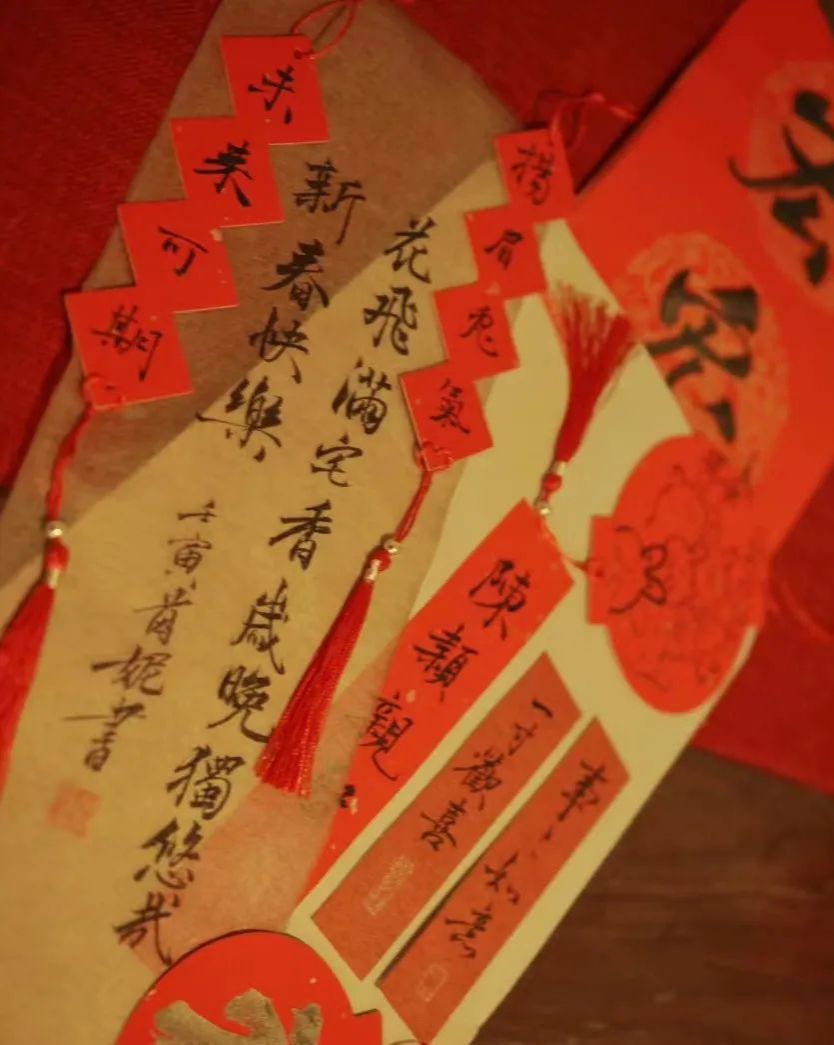 揚眉兔氣
陳穎親
事々如意
一寸歡喜
花飛滿宅香歲晚獨悠哉
新春快樂
壬寅妮書
未来可期